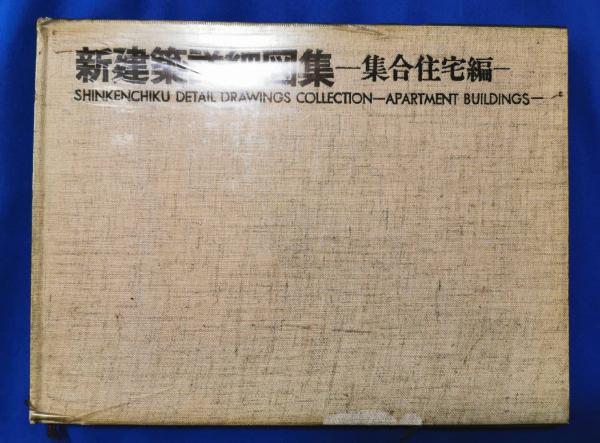 新建築詳細図集―集合住宅編―
SHINKENCHIKU DETAIL DRAWINGS COLLECTION—APARTMENT BUILDINGS—